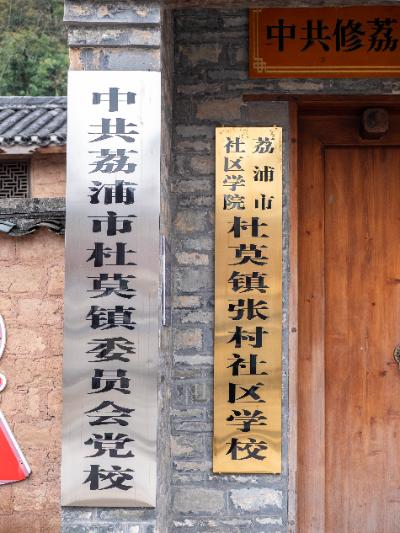 中共修荔
中共荔浦市杜莫镇委员会党校
荔浦市
社区学院
杜莫镇张村社区学校